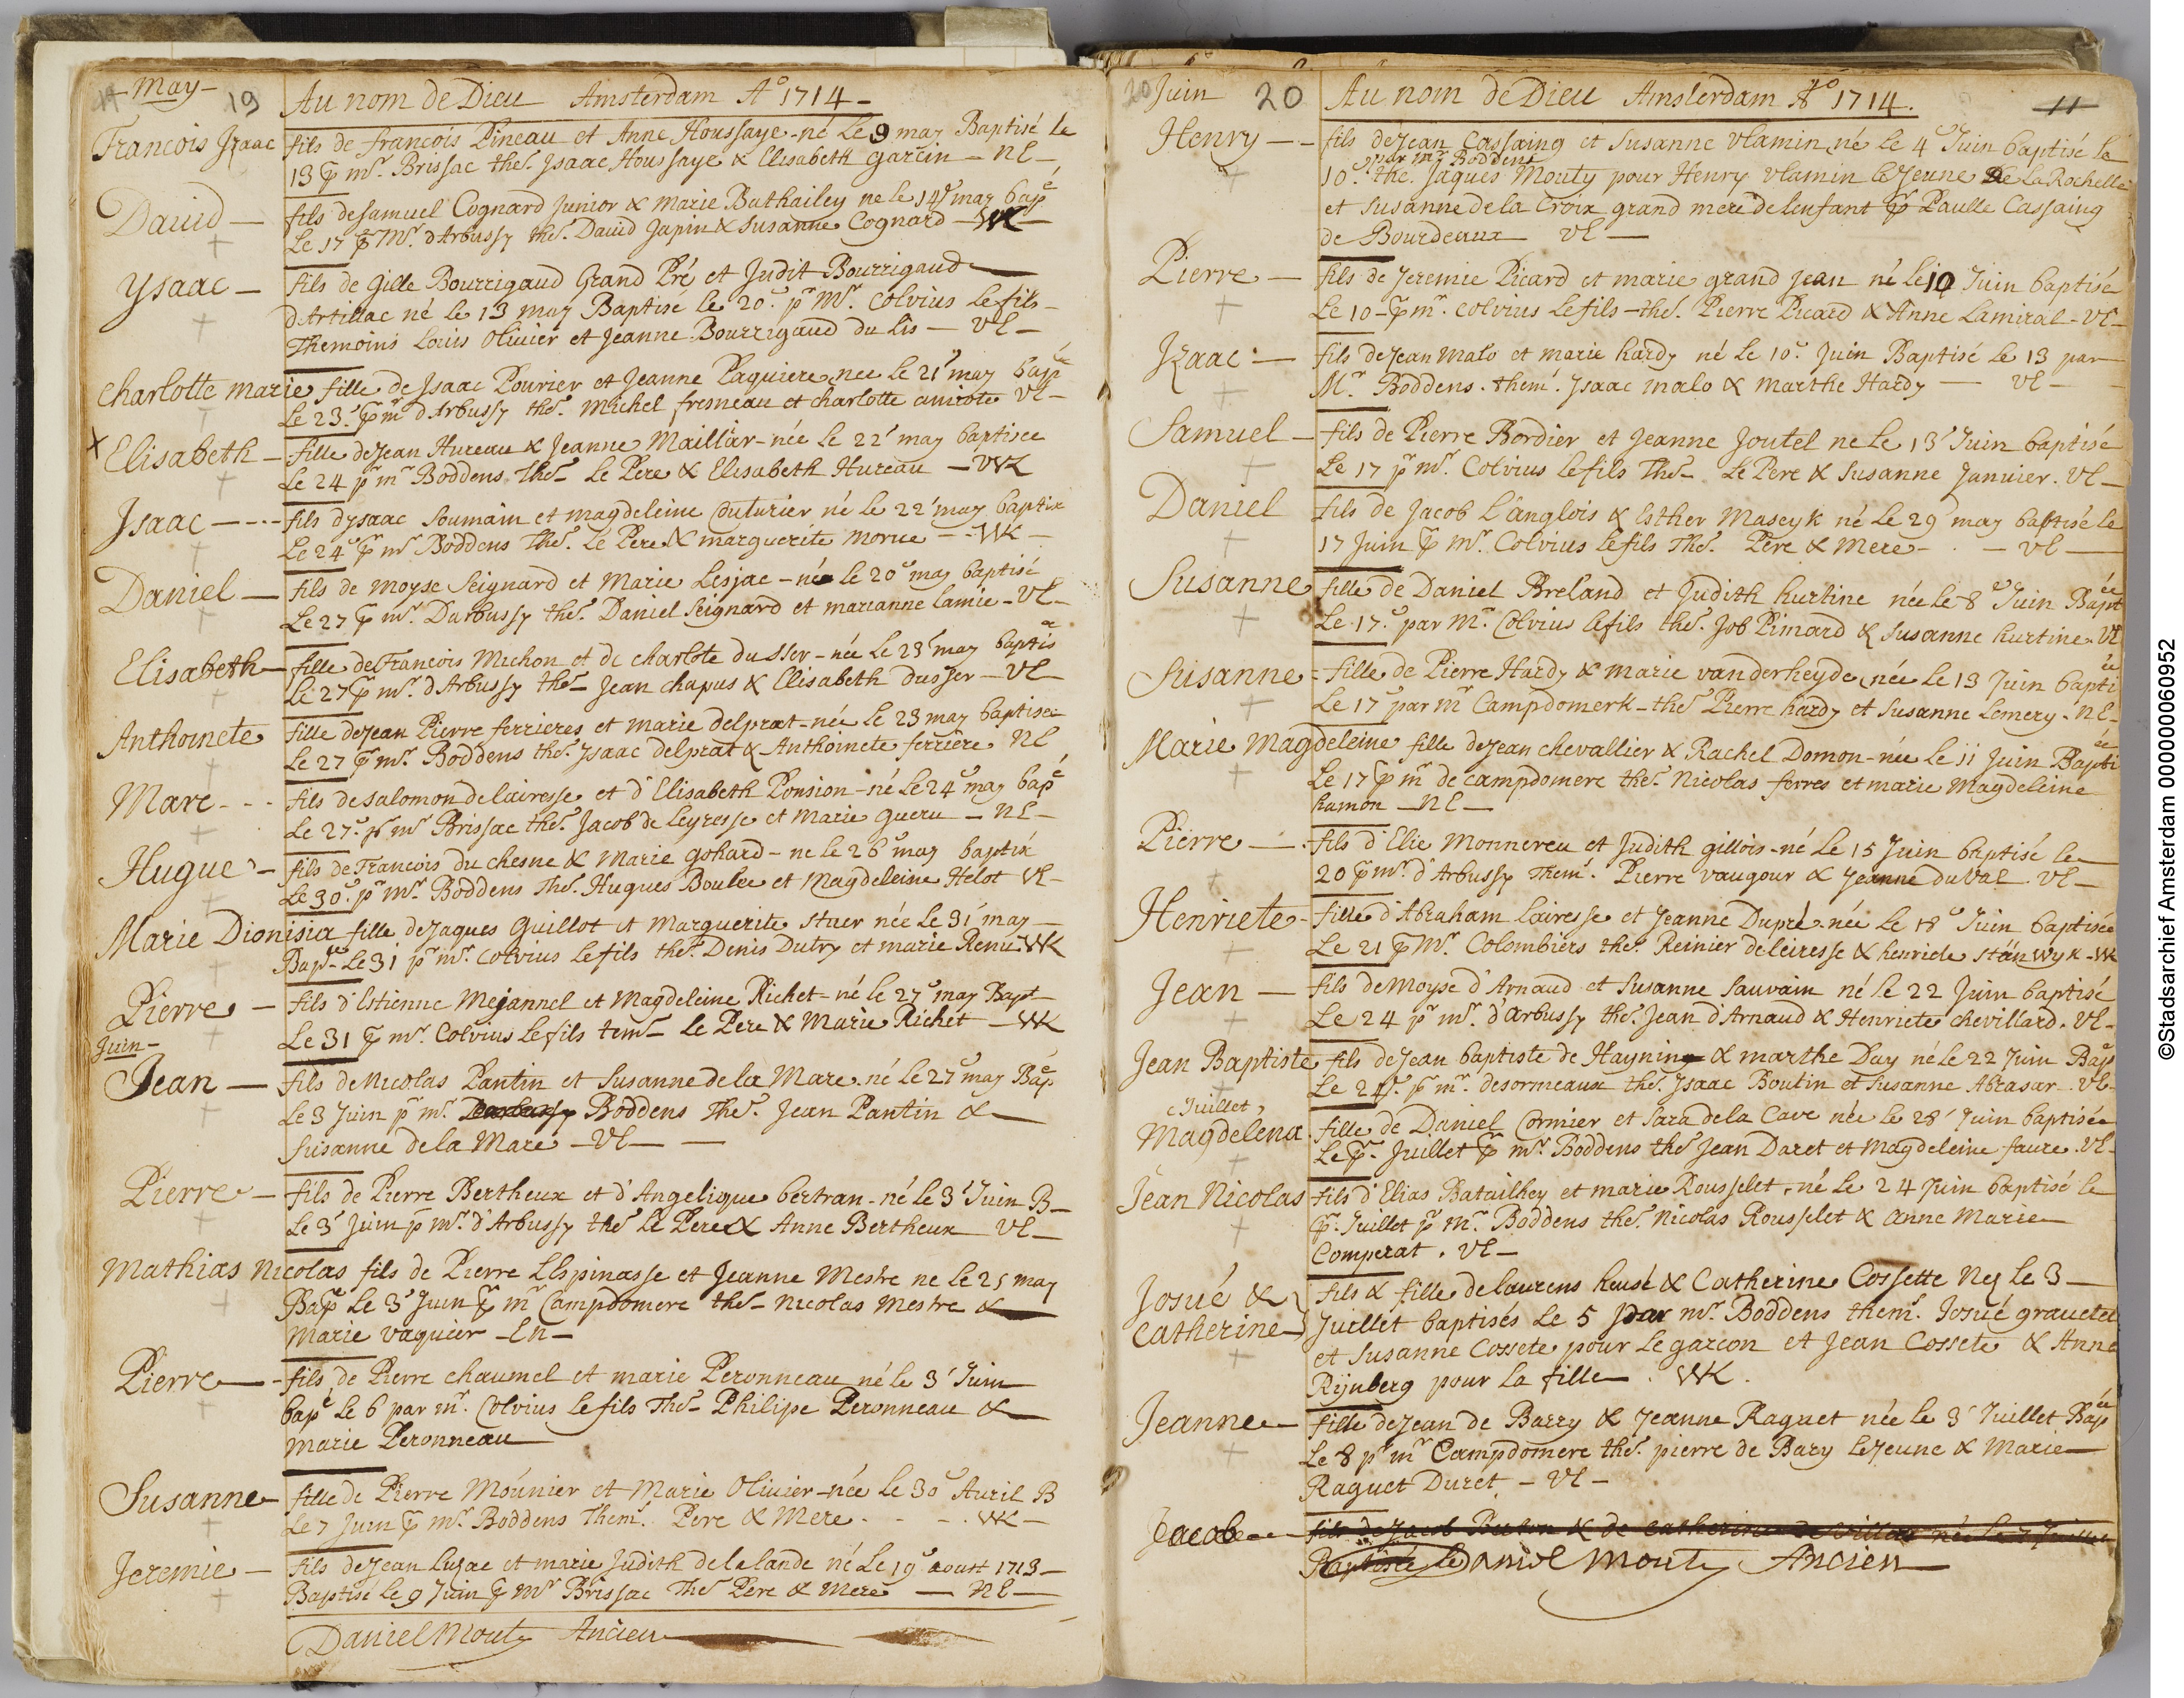 May
19
Au nom de Dieu Amsterdam Aº 1714
François Izaac fils de francois Pineau et Anne Houssaye né Le 9 may Baptisé le
13 pr mr. Brissac thes. Isaac Houssaye & Elisabeth garcin NE
David fils de Samuel Cognard Junior & Marie Bathailey ne le 14e may bapé
Le 17 pr Mr. dArbussy thes. David Japin & Susanne Cognard WK
Ysaac fils de Gille Bourrigaud Grand Pré et Judit Bourrigaud
dArtillac né le 13 may Baptise le 20e pr Mr. Colvius le fils
Themoins Louis Olivier et Jeanne Bourrigaud du Lis VE
Charlotte marie fille de Isaac Pourier et Jeanne Paquiere nee le 21e may bapé
Le 23e pr mr dArbussy thes. Michel fresneau et charlotte amirote VE
x Elisabeth fille de Jean Hureau & Jeanne Maillar née le 22e may baptisee
Le 24 pr mr Boddens thes Le Pere & Elisabeth Hureau WK
Isaac fils dysaac Soumain et magdeleine Couturier né le 22e may baptisé
Le 24e pr mr Boddens Thes. Le Pere & marguerite morue WK
Daniel fils de moyse Seignard et Marie Lesjac né le 20e may baptisé
Le 27 pr mr. Darbussy thes. Daniel Seignard et marianne lamie VE
Elisabeth fille de Francois Michon et de charlote du sser née le 23e may baptis
Le 27 pr mr. d'Arbussy thes Jean chapus & Elisabeth dusser VE
Anthoinete fille de Jean Pierre ferrieres et marie delprat née le 23 may baptisée
Le 27 pr mr. Boddens thes. Ysaac delprat & Anthoinete ferriere NE
Marc fils de salomon de lairesse et d'Elisabeth Ponsion né Le 24e may bapé
Le 27e. pr mr Brissac thes. Jacob de Leyresse et Marie gueru NE
Hugue fils de Francois du chesne & Marie gohard ne le 26e may baptisé
Le 30e. pr mr. Boddens Thes. Hugues Boulee et Magdeleine Helot VE
Marie Dionisia fille de Jaques Guillot et Marguerite Stuer née Le 31e may
Bapee Le 31 pr mr. Colvius le fils thes. Denis Dutry et marie Renu WK
Pierre fils d'Estienne Mejannel et Magdeleine Richet né le 27e may Bapt
Le 31 pr mr. Colvius Le fils tems Le Pere & Marie Richet WK
Juin
Jean fils de Nicolas Pantin et Susanne de la Mare né Le 27e may Bapé
Le 3 Juin pr mr. Boddens Thes. Jean Pantin &
Susanne de la Mare VE
Pierre fils de Pierre Bertheux et d'Angelique bertran né le 3e Juin B
Le 3e Juin pr mr. d'Arbussy thes Le Pere & Anne Bertheux VE
Mathias Nicolas fils de Pierre LEspinasse et Jeanne Mestre ne le 25 may
Bapé Le 3e Juin pr mr Campdomerc thes Nicolas Mestre &
Marie vaquier En
Pierre fils de Pierre chaumel et marie Peronneau né le 3e Juin
bapé Le 6 par mr. Colvius Le fils Thes Philipe Peronneau &
Marie Peronneau
Susanne fille de Pierre Moúnier et Marie Olivier née Le 30e Avril B
Le 7 Juin pr mr. Boddens Them. Pere & Mere WK
Jeremie fils de Jean Luzac et marie Judith de la lande né Le 19e aoust 1713
Baptisé le 9 Juin pr Mr Brissac Thes Pere & Mere NE
Daniel Mouty Ancien
20 Juin 20
Au nom de Dieu Amsterdam Aº 1714.
11
Henry fils de Jean Cassaing et Susanne Vlamin né Le 4e Juin baptisé Le
par mr Boddens
10e. the. Jaques Mouty pour Henry Vlamin le Jeune De La Rochelle
et Susanne de la Croix grand mere de lenfant pr Paulle Cassaing
de Bourdeaux VE
Pierre fils de Jeremie Picard et marie grand Jean né le 10 Juin baptisé
Le 10 pr mr. Colvius Le fils thes. Pierre Picard & Anne Lamiral VE
Izaac fils de Jean Malo et marie hardy né Le 10e. Juin Baptisé Le 13 par
Mr. Boddens. them. Ysaac malo & Marthe Hardy VE
Samuel fils de Pierre Bordier et Jeanne Joutel ne Le 13e Juin baptisé
Le 17 pr mr. Colvius le fils Thes Le Pere & Susanne Janvier. VE
Daniel fils de Jacob L'anglois & Esther Maseyk né Le 29e may baptisé le
17 Juin pr mr. Colvius Le fils Thes. Pere & Mere VE
Susanne fille de Daniel Breland et Judith hurtine née le 8e Juin Bapt ée
Le 17e par Mr. Colvius le fils thes. Job Pimard & Susanne hurtine VE
Susanne fille de Pierre Hardy & Marie vanderheyde née le 13 Juin bapti ée
Le 17e par mr Campdomerk thes Pierre hardy et Susanne Lemery NE
Marie Magdeleine fille de Jean chevallier & Rachel Domon née Le 11 Juin Bapti ée
Le 17 pr mr de campdomerc thes Nicolas ferres et marie Magdeleine
hamon NE
Pierre fils d'Elie Monnereu et Judith gillois né Le 15 Juin baptisé le
20 pr mr. d'Arbussy Them. Pierre vaugour & Jeanne duVal. VE
Henriete fille d'Abraham Lairesse et Jeanne Dupré née Le 18e Juin baptisée
Le 21 pr Mr. Colombiers thes. Reinier de leiresse & henriete Stanwyk WK
Jean fils de Moyse d'Arnaud et Susanne Sauvain né le 22 Juin baptisé
Le 24 pr mr. d'arbussy thes. Jean d'Arnaud & Henriete chevillard. VE
Jean Baptiste fils de Jean baptiste de Haynin & marthe Day né Le 22 Juin Bapé
Le 24e. pr mr. desormeaux thes. Ysaac Boutin et Susanne Abrasar VE
Juillet
Magdelena fille de Daniel Cormier et Sara de la Cave née Le 28e Juin baptisée
Le pr. Juillet pr mr. Boddens thes Jean Daret et Magdeleine faure. VE
Jean Nicolas fils d'Elias Batailhey et marie Rousselet, né Le 24 Juin baptisé le
pr. Juillet pr mr. Boddens thes. Nicolas Rousselet & Anne Marie
Comperat. VE
Josué & Catherine fils & fille de laurens husé & Catherine Cossette Nez Le 3
Juillet baptisés Le 5 par mr. Boddens them. Josué gravelet
et Susanne Cossete pour Le garcon et Jean Cossete & Anne
Rijnberg pour La fille. WK.
Jeanne fille de Jean de Barry & Jeanne Raguet née le 3e Juillet Bapée
Le 8 pr mr Campdomerc thes. pierre de Bary le Jeune & Marie
Raguet Duret VE
Jacob fils de Jacob & de Catherine de né Le 7 Juillet
Baptisé Le Daniel Mouty Ancien
©Stadsarchief Amsterdam 000000060952